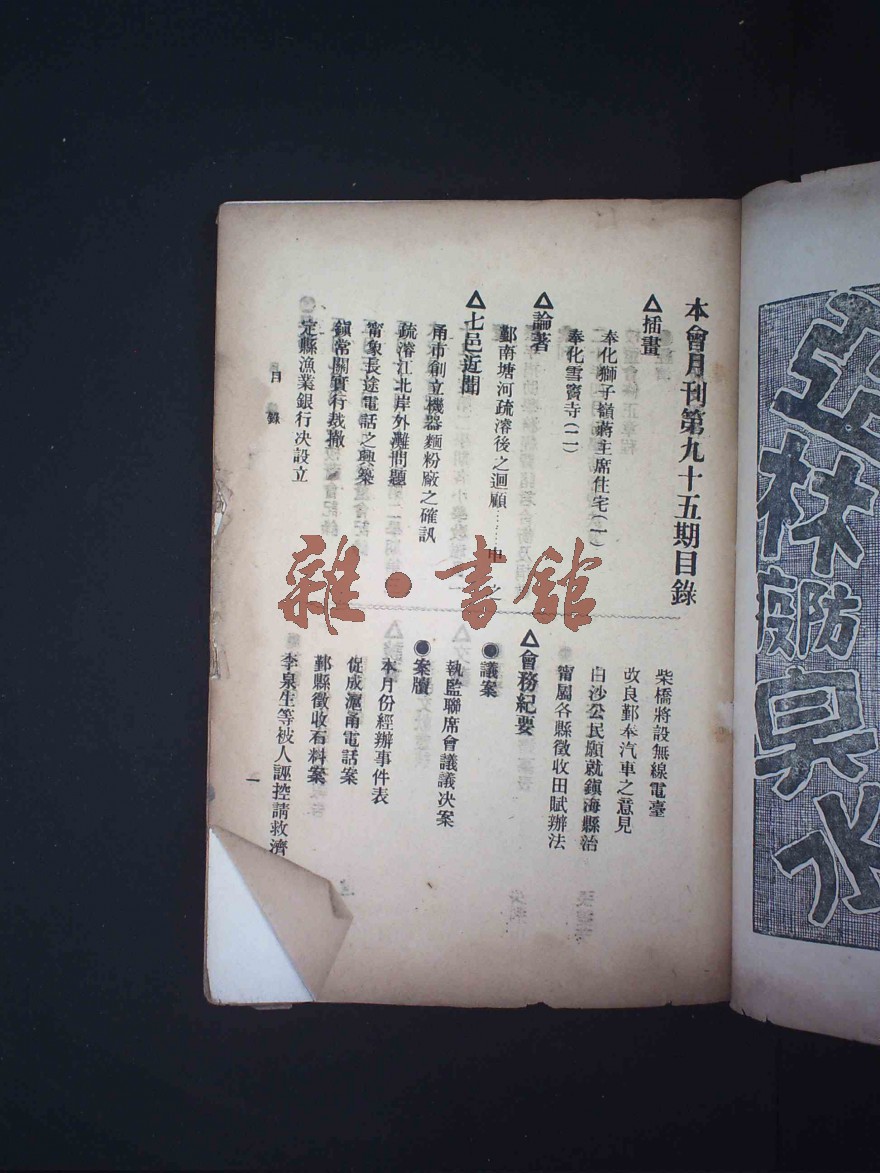 本會月刊第九十五期目錄
△插畫
奉化獅子嶺蔣主席住宅(一)
奉化雪竇寺(二)
△論著
鄞南塘河疏濬後之迴顧……中 之
△七邑近聞
甬市創立機器麵粉廠之確訊
疏濬江北岸外灘問題
甯象長途電話之興築
鎮常關實行裁撤
定縣漁業銀行決設立
柴橋將設無線電臺
改良鄞奉汽車之意見
白沙公民願就鎮海縣治
甯屬各縣徵收田賦辦法
△會務紀要
●議案
執監聯席會議議決案
●案牘
本月份經辦事件表
促成滬甬電話案
鄞縣徵收石料案
李泉生等被人誣控請救濟
目錄
一
雜·書館
林
防
臭
水